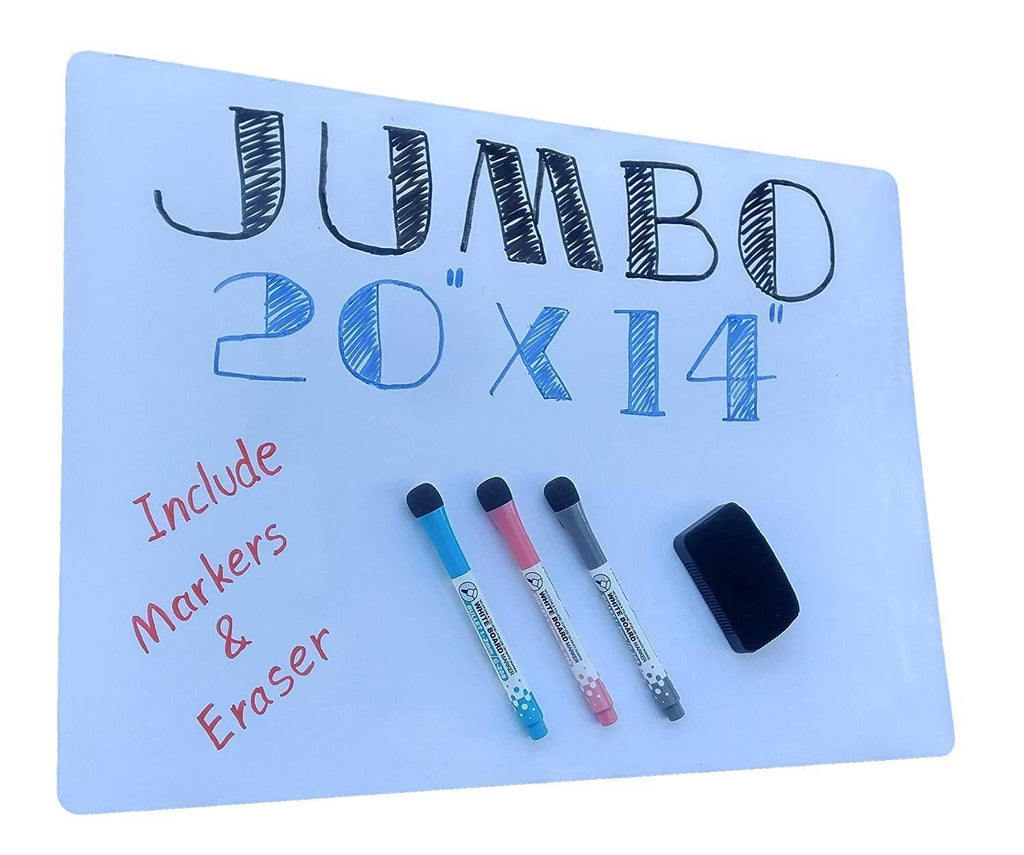 JUMBO
20" X 14"
Include
Markers
&
Eraser
WHITE BOARD
MARKER
WHITE BOARD
MARKER
WHITE BOARD
MARKER